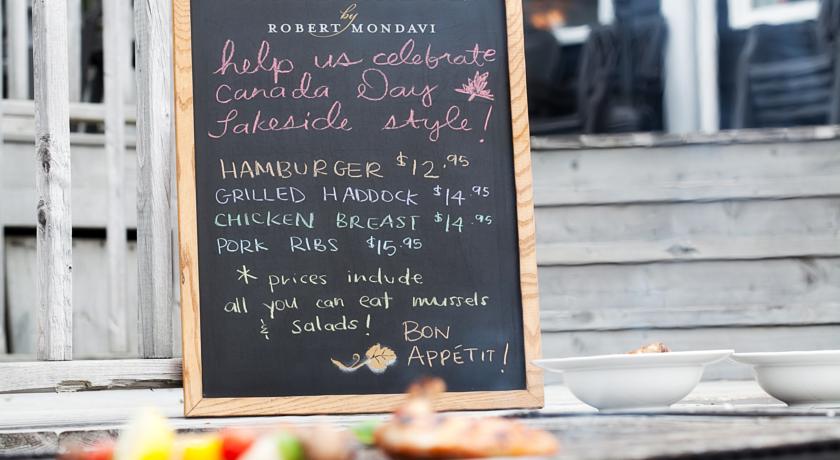 by
ROBERT MONDAVI
help us celebrate
Canada Day
Lakeside style!
HAMBURGER $12.95
GRILLED HADDOCK $14.95
CHICKEN BREAST $14.95
PORK RIBS $15.95
* prices include
all you can eat mussels
& salads!
BON
APPÉTIT!